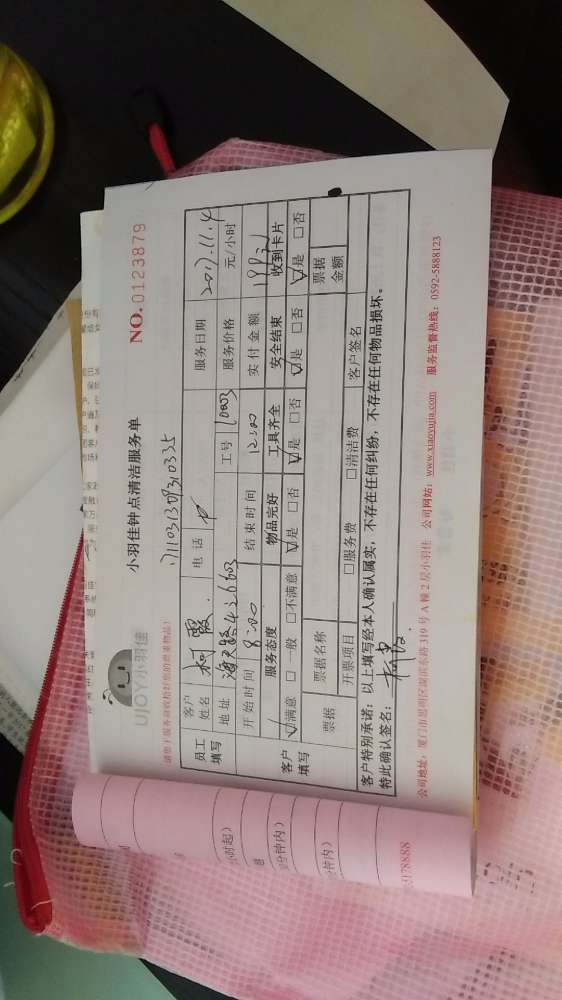 UJOY小羽佳
小羽佳钟点清洁服务单
NO.0123879
员工填写
客户姓名 柯霞 电话 服务日期 2017.11.4
地址 工号 10003 服务价格 元/小时
开始时间 8:00 结束时间 12:00 实付金额
客户填写
服务态度 物品完好 工具齐全 安全结束 收到卡片
☑满意 □一般 □不满意 ☑是 □否 ☑是 □否 ☑是 □否 ☑是 □否
票据 票据名称 票据金额
开票项目 □服务费 □清洁费 客户签名
客户特别承诺：以上填写经本人确认属实，不存在任何纠纷，不存在任何物品损坏。
特此确认签名：
公司地址：厦门市思明区湖滨东路319号A幢2层小羽佳 公司网站：www.xiaoyujia.com 服务监督热线：0592-5888123